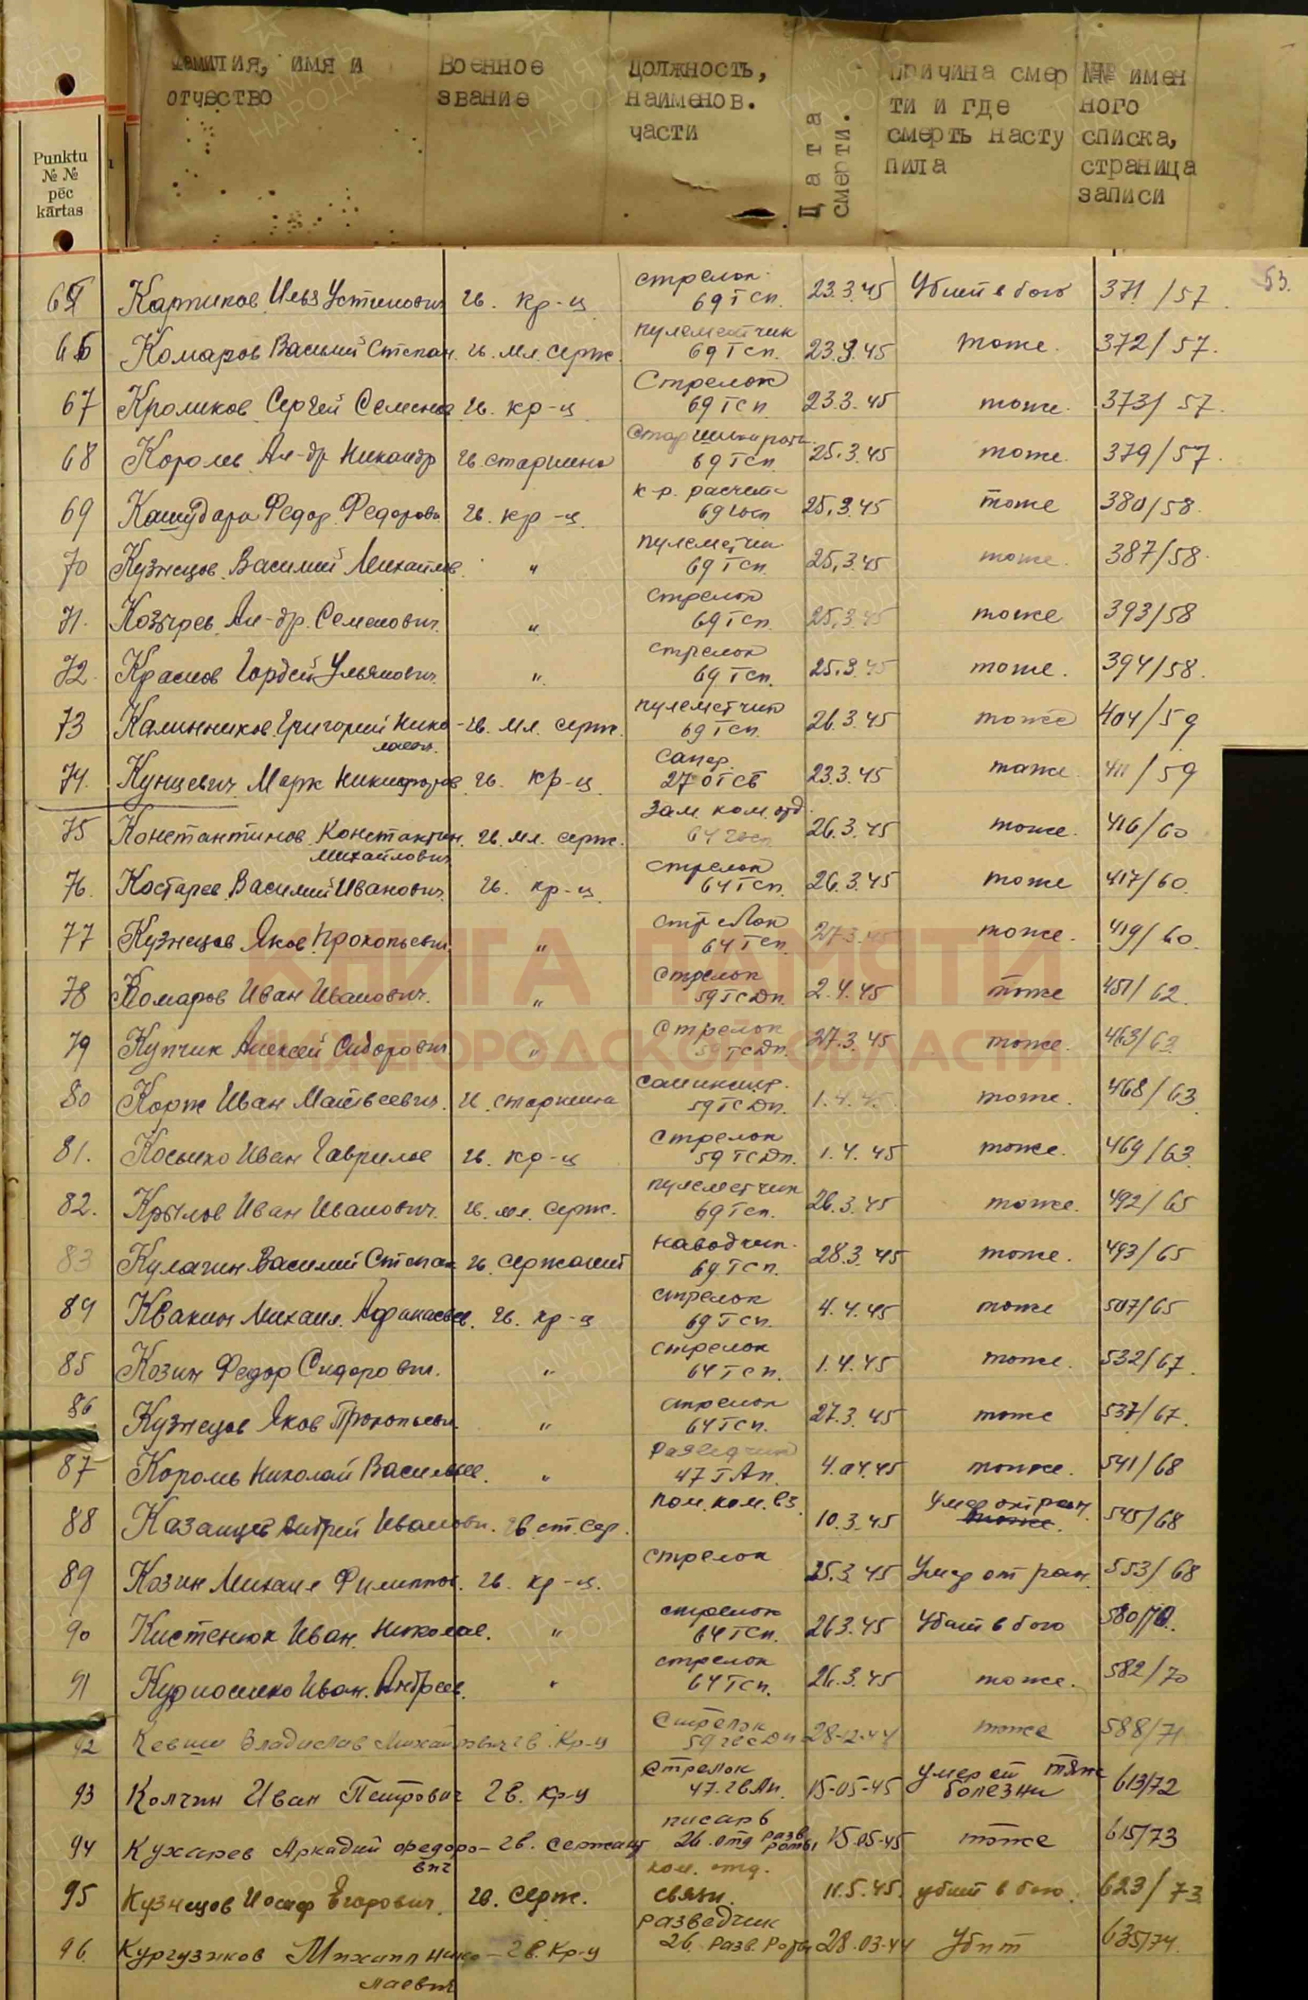 Фамилия, имя и отчество
Военное звание
Должность, наименов. части
Дата смерти.
Причина смерти и где смерть наступила
№№ именного списка, страница записи
Punktu
№ №
pēc
kārtas
53.
65 Карпиков Илья Устинович гв. кр-ц стрелок 69 гсп. 23.3.45 Убит в бою 371/57
66 Комаров Василий Степан. гв. мл. серж. пулеметчик 69 гсп. 23.3.45 тоже. 372/57.
67 Кроликов Сергей Семенов гв. кр-ц Стрелок 69 гсп. 23.3.45 тоже. 373/57.
68 Королев Ал-др Никандр гв. старшина 69 гсп. 25.3.45 тоже. 379/57.
69 Кашудара Федор Федоров гв. кр-ц. к-р. расчета 69 гсп 25.3.45 тоже 380/58.
70 Кузнецов Василий Михайлов " пулеметчик 69 гсп. 25.3.45 тоже. 387/58.
71. Козырев Ал-др. Семенович " стрелок 69 гсп. 25.3.45 тоже 393/58
72. Краснов Гордей Ульянович " стрелок 69 гсп. 25.3.45 тоже. 394/58.
73 Калинников Григорий Николаев. гв. мл. серж. пулеметчик 69 гсп. 26.3.45 тоже 404/59
74. Кунцевич Марк гв. кр-ц. сапер. 27 огсб 23.3.45 тоже 411/59
75 Константинов Константин Михайлович гв. мл. серж. Зам. ком. отд. 64 гсп 26.3.45 тоже. 416/60
76. Костарев Василий Иванович гв. кр-ц. стрелок 64 гсп. 26.3.45 тоже 417/60.
77 Кузнецов Яков Прокопьевич " стрелок 64 гсп. 27.3.45 тоже. 419/60.
78 Комаров Иван Иванович. " Стрелок 59 гсдп. 2.4.45 тоже 451/62.
79 Купчик Алексей Сидорович " Стрелок 59 гсдп. 27.3.45 тоже. 463/63
80 Корж Иван Матвеевич. гв. старшина 59 гсдп. 1.4.45 тоже. 468/63
81. Косенко Иван Гаврилов гв. кр-ц стрелок 59 гсдп. 1.4.45 тоже. 469/63
82. Крылов Иван Иванович. гв. мл. серж. пулеметчик 69 гсп. 26.3.45 тоже. 492/65
83 Кулагин Василий Степан гв. сержант наводчик. 69 гсп. 28.3.45 тоже. 493/65
84 Квакин Михаил Афанасьев. гв. кр-ц стрелок 69 гсп. 4.4.45 тоже 507/65
85 Козин Федор Сидорович. " стрелок 64 гсп. 1.4.45 тоже. 532/67
86 Кузнецов Яков Прокопьевич " стрелок 64 гсп. 27.3.45 тоже 537/67.
87 Король Николай Васильев. " разведчик 47 гап. 4.04.45 тоже. 541/68
88 Казанцев Андрей Иванович. гв. ст. сер. пом. ком. вз. 10.3.45 Умер от ран. тоже. 545/68
89 Козин Михаил Филиппов. гв. кр-ц. стрелок 25.3.45 Умер от ран. 553/68
90 Кистенюк Иван Николаев. " стрелок 64 гсп. 26.3.45 Убит в бою 580/70.
91 Иван Андреев. " стрелок 64 гсп. 26.3.45 тоже. 582/70
92 Владислав Михайлович гв. кр-ц Стрелок 59 гвсдп 28-12-44 тоже 588/71
93 Колчин Иван Петрович гв. кр-ц Стрелок 47. гв Ап. 15-05-45 умер от тяж болезни 613/72
94 Кухарев Аркадий Федорович гв. сержант писарь 26 отд разв роты 15.05-45 тоже 615/73
95 Кузнецов Иосиф Егорович. гв. серж. ком. отд. связи. 11.5.45. убит в бою. 623/73
96. Кургузиков Михаил Николаевич гв. кр-ц разведчик 26 разв. Роты 28.03-44 Убит 635/74.
КНИГА ПАМЯТИ
НИЖЕГОРОДСКОЙ ОБЛАСТИ